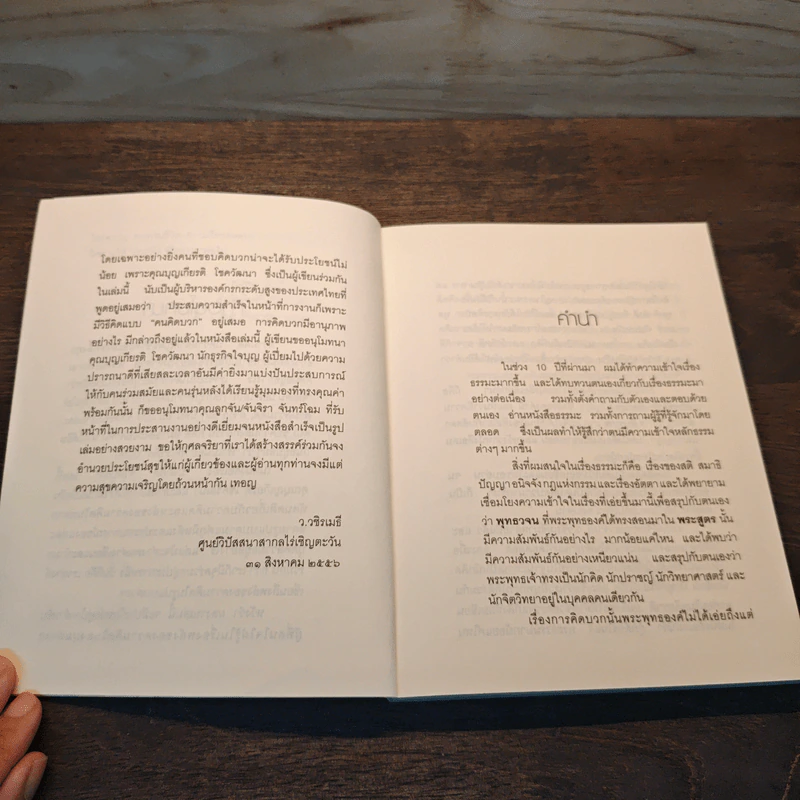 โดยเฉพาะอย่างยิ่งคนที่ชอบคิดบวกน่าจะได้รับประโยชน์ไม่
น้อย เพราะคุณบุญเกียรติ โชควัฒนา ซึ่งเป็นผู้เขียนร่วมกัน
ในเล่มนี้ นับเป็นผู้บริหารองค์กรระดับสูงของประเทศไทยที่
พูดอยู่เสมอว่า ประสบความสำเร็จในหน้าที่การงานก็เพราะ
มีวิธีคิดแบบ “คนคิดบวก” อยู่เสมอ การคิดบวกมีอานุภาพ
อย่างไร มีกล่าวถึงอยู่แล้วในหนังสือเล่มนี้ ผู้เขียนขออนุโมทนา
คุณบุญเกียรติ โชควัฒนา นักธุรกิจใจบุญ ผู้เปี่ยมไปด้วยความ
ปรารถนาดีที่เสียสละเวลาอันมีค่ายิ่งมาแบ่งปันประสบการณ์
ให้กับคนร่วมสมัยและคนรุ่นหลังได้เรียนรู้มุมมองที่ทรงคุณค่า
พร้อมกันนั้น ก็ขออนุโมทนาคุณลูกจัน/จันจิรา จันทร์โฉม ที่รับ
หน้าที่ในการประสานงานอย่างดีเยี่ยมจนหนังสือสำเร็จเป็นรูป
เล่มอย่างสวยงาม ขอให้กุศลจริยาที่เราได้สร้างสรรค์ร่วมกันจง
อำนวยประโยชน์สุขให้แก่ผู้เกี่ยวข้องและผู้อ่านทุกท่านจงมีแต่
ความสุขความเจริญโดยถ้วนหน้ากัน เทอญ
ว.วชิรเมธี
ศูนย์วิปัสสนาสากลไร่เชิญตะวัน
๓๑ สิงหาคม ๒๕๕๖
คำนำ
ในช่วง 10 ปีที่ผ่านมา ผมได้ทำความเข้าใจเรื่อง
ธรรมะมากขึ้น และได้ทบทวนตนเองเกี่ยวกับเรื่องธรรมะมา
อย่างต่อเนื่อง รวมทั้งตั้งคำถามกับตัวเองและตอบด้วย
ตนเอง อ่านหนังสือธรรมะ รวมทั้งการถามผู้รู้ที่รู้จักมาโดย
ตลอด ซึ่งเป็นผลทำให้รู้สึกว่าตนมีความเข้าใจหลักธรรม
ต่างๆ มากขึ้น
สิ่งที่ผมสนใจในเรื่องธรรมะก็คือ เรื่องของสติ สมาธิ
ปัญญา อนิจจัง กฎแห่งกรรม และเรื่องอัตตา และได้พยายาม
เชื่อมโยงความเข้าใจในเรื่องที่เอ่ยขึ้นมานี้เพื่อสรุปกับตนเอง
ว่า พุทธวจน ที่พระพุทธองค์ได้ทรงสอนมาใน พระสูตร นั้น
มีความสัมพันธ์กันอย่างไร มากน้อยแค่ไหน และได้พบว่า
มีความสัมพันธ์กันอย่างเหนียวแน่น และสรุปกับตนเองว่า
พระพุทธเจ้าทรงเป็นนักคิด นักปราชญ์ นักวิทยาศาสตร์ และ
นักจิตวิทยาอยู่ในบุคคลคนเดียวกัน
เรื่องการคิดบวกนั้นพระพุทธองค์ไม่ได้เอ่ยถึงแต่